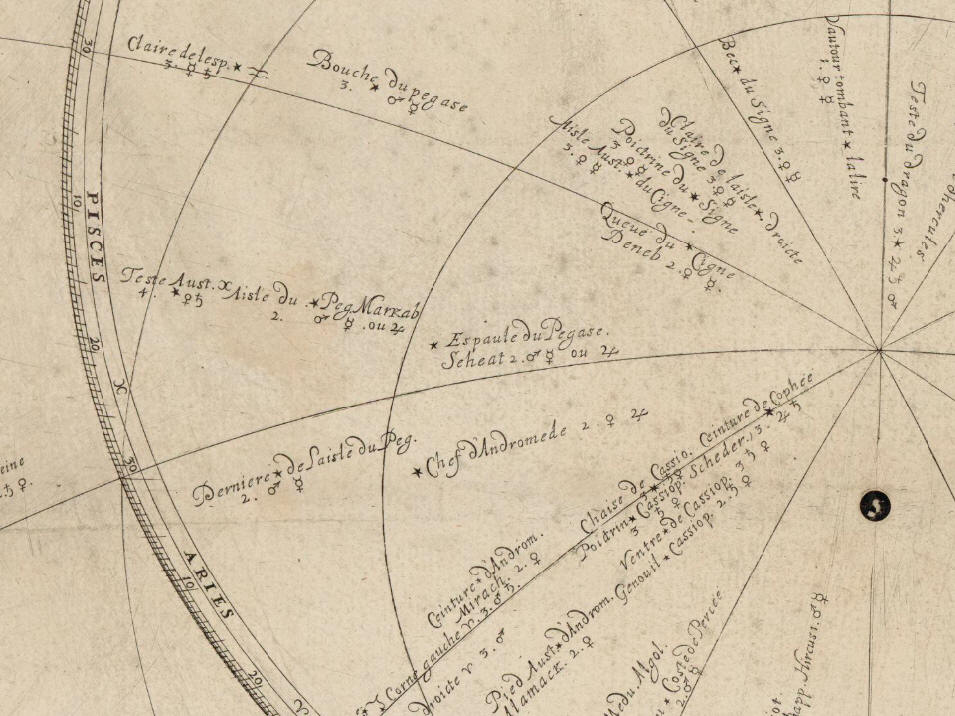 30
Claire de lesp. ★ ♒
3. ☿ ♄
Bouche du pegase
3. ★ ♂ ☿
Bec★ du Signe 3. ♀ ☿
Vautour tombant ★ lalire
1. ♀ ☿
Teste du dragon 3 ★ ♃ ♄ ♂
Claire de laisle★ droicte
du Signe 3 ♀ ☿
Poictrine du ★ Signe
3 ♀ ☿
Aisle Aust. ★ du Cigne
3. ♀ ☿
Queue du ★ Cigne
Deneb 2. ♀ ☿.
10
PISCES
Teste Aust. ♓
4. ★ ♀ ♄
Aisle du ★ Peg Markab
2. ♂ ☿ .ou ♃
20
★ Espaule du Pegase.
Seheat 2. ♂ ☿ ou ♃
♓
30
Derniere ★ de Laisle du Peg.
2. ♂ ☿
★ Chef d'Andromede 2. ♀ ♃
Chaise de ★ Cassio.
Ceinture de ★ Cophée
♃ ♄
Poictrin★ Cassiop. Scheder. 3.
3 ♄ ♀
Ventre★ de Cassiop. 3 ♄ ♀
Genouil ★ Cassiop. 2. ♄ ♀
ARIES
10
Ceinture★ d'Androm.
Mirach. 2. ♀
★ Corne gauche ♈. 3. ♂ ♄.
droicte ♈ 3. ♂
Pied Aust★ d'Androm.
Alamack. 2. ♀
Algol.
★ Coste de Percée
2. ♂
Hircusi. ♂ ☿
20
♈